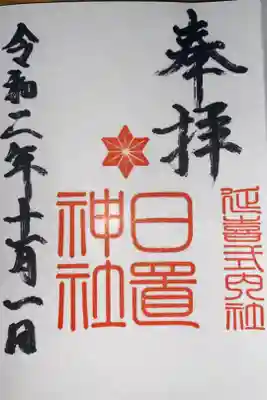 奉拝
延喜式内社
日置
神社
令和二年十月一日